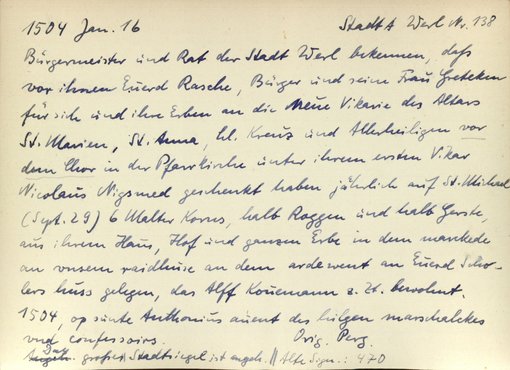 1504 Jan. 16 Stadt A Werl Nr. 138
Bürgermeister und Rat der Stadt Werl bekennen, daß
vor ihnen Euerd Rasche, Bürger und seine Frau Greteken
für sich und ihre Erben an die Neue Vikarie des Altars
St. Marien, St. Anna, hl. Kreuz und Allerheiligen vor
dem Chor in der Pfarrkirche unter ihrem ersten Vikar
Nicolaus Nigsmed geschenkt haben jährlich auf St. Michael
(Sept. 29) 6 Malter Korns, halb Roggen und halb Gerste,
aus ihrem Haus, Hof und ganzen Erbe in dem marckede
an vnsem raidhuise an dem ardewent an Euerd Scho-
lers huss gelegen, das Alff Kouemann z. Zt. bewohnt.
1504, op sunte Anthonius auent des hilgen marschalckes
vnd confessoirs. Orig. Perg.
Das großes Stadtsiegel ist angeh. || Alte Sign.: 470